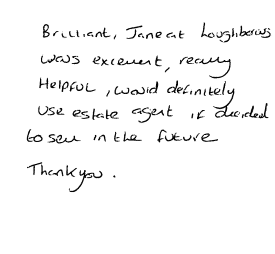 Brilliant, Jane at Loughborough
was excellent, really
Helpful, would definitely
use estate agent if decided
to sell in the future
Thankyou.